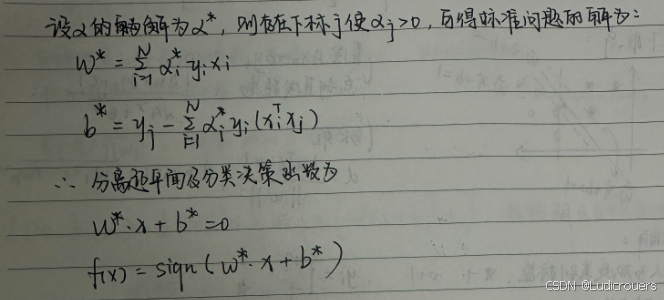 设α的解为α*，则存在下标j使αj>0，可得标准问题的解为：
w* = Σ_{i=1}^{N} αi* yi xi
b* = yj − Σ_{i=1}^{N} αi* yi (xiᵀ xj)
∴ 分离超平面及分类决策函数为
w*·x + b* = 0
f(x) = sign(w*·x + b*)
CSDN @Ludicrouers